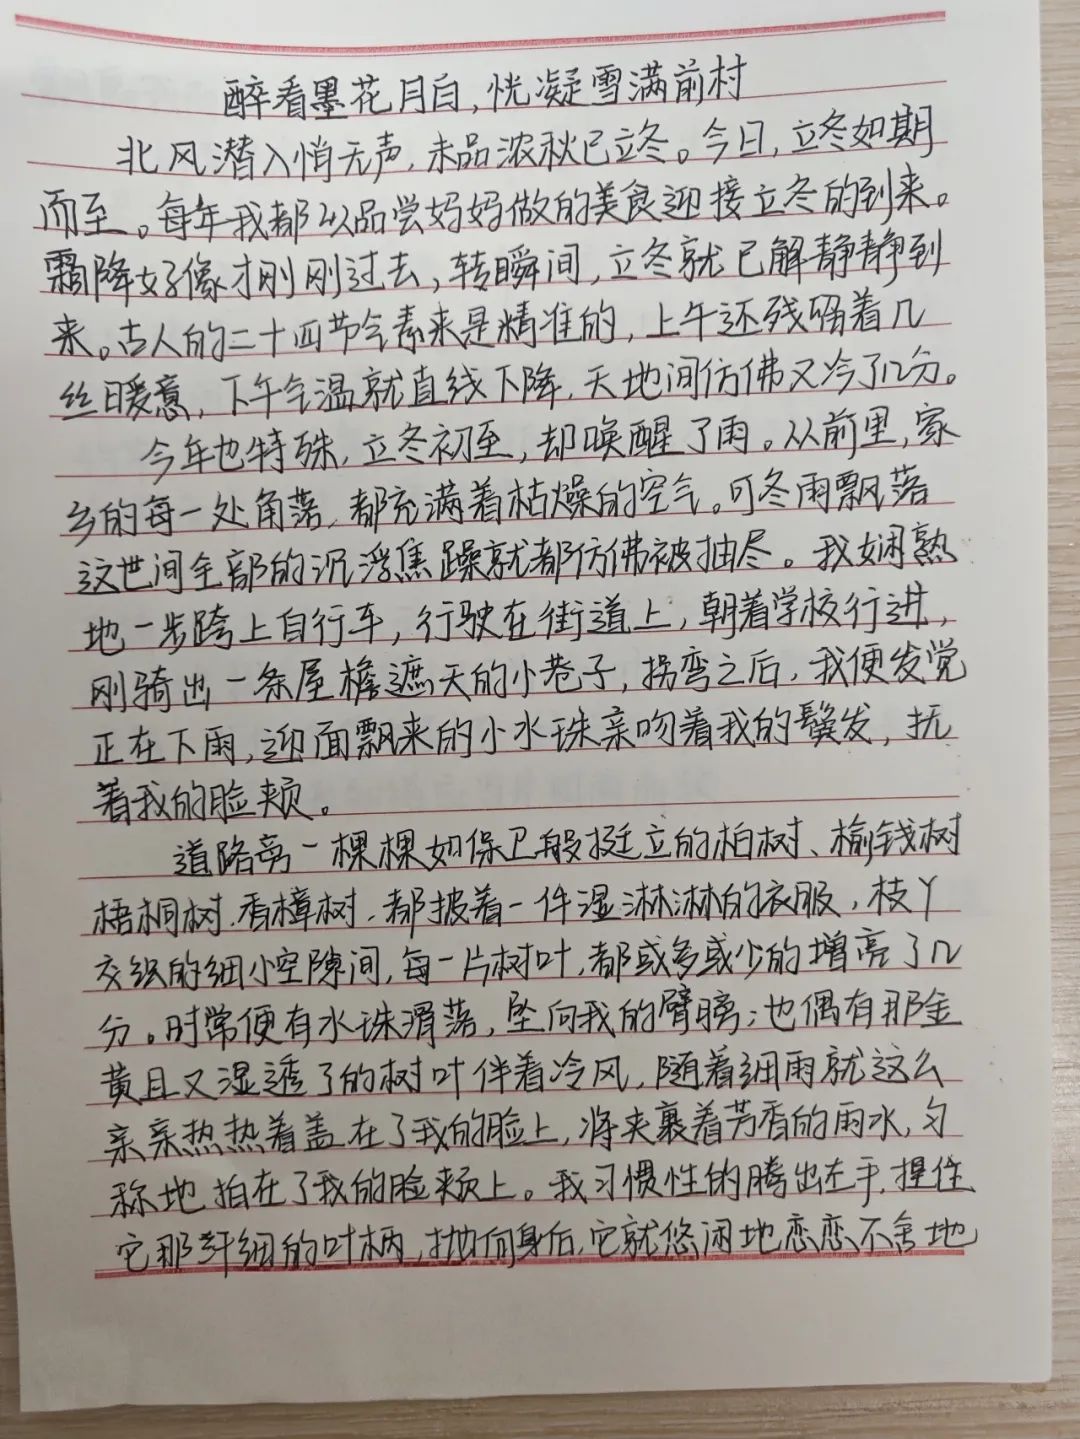 醉看墨花月白,恍凝雪满前村
北风潜入悄无声,未品浓秋已立冬。今日,立冬如期
而至。每年我都以品尝妈妈做的美食迎接立冬的到来。
霜降好像才刚刚过去,转瞬间,立冬就已解静静到
来。古人的二十四节气素来是精准的,上午还残留着几
丝暖意,下午气温就直线下降,天地间仿佛又冷了几分。
今年也特殊,立冬初至,却唤醒了雨。从前里,家
乡的每一处角落,都充满着枯燥的空气。可冬雨飘落
这世间全部的沉浮焦躁就都仿佛被抽尽。我娴熟
地一步跨上自行车,行驶在街道上,朝着学校行进,
刚骑出一条屋檐遮天的小巷子,拐弯之后,我便发觉
正在下雨,迎面飘来的小水珠亲吻着我的鬓发,抚
着我的脸颊。
道路旁一棵棵如保卫般挺立的柏树、榆钱树
梧桐树.香樟树,都披着一件湿淋淋的衣服,枝丫
交织的细小空隙间,每一片树叶,都或多或少的增亮了几
分。时常便有水珠滑落,坠向我的臂膀;也偶有那金
黄且又湿透了的树叶伴着冷风,随着细雨就这么
亲亲热热着盖在了我的脸上,将夹裹着芳香的雨水,匀
称地拍在了我的脸颊上。我习惯性的腾出左手,捏住
它那纤细的叶柄,抛向身后,它就悠闲地恋恋不舍地